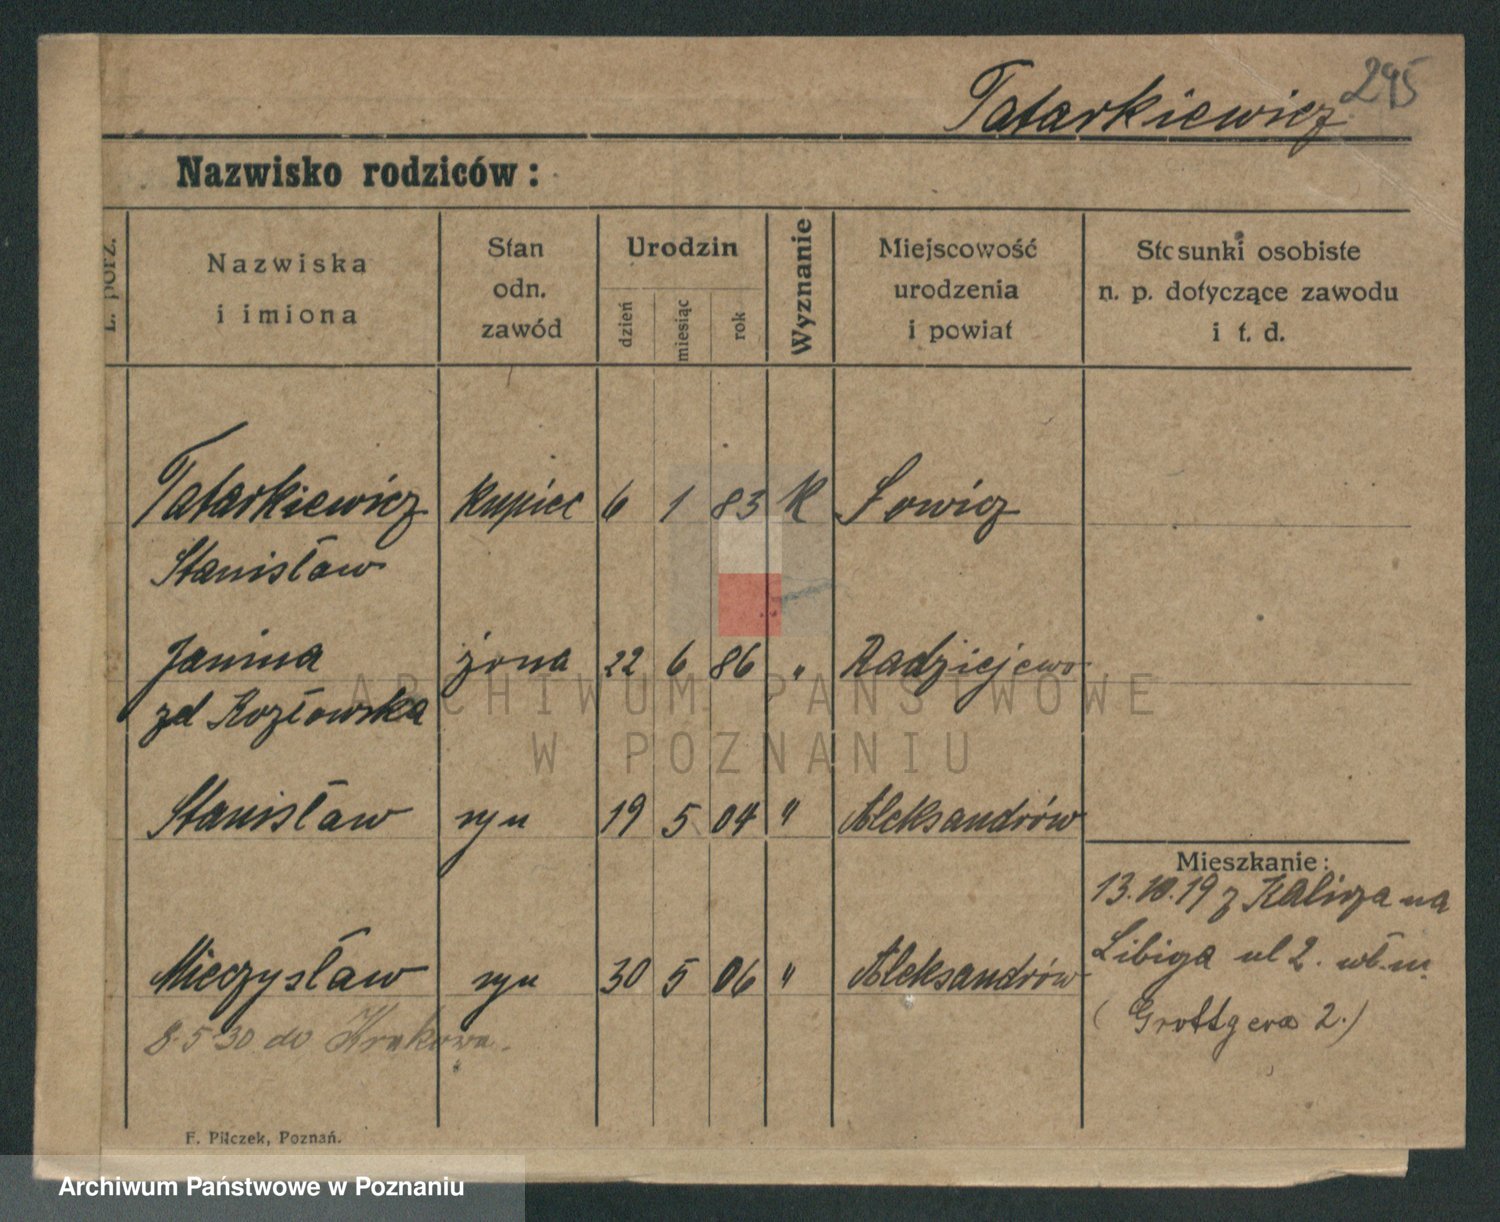 295
Tatarkiewicz
Nazwisko rodziców:
L. porz.
Nazwiska
i imiona
Stan
odn.
zawód
Urodzin
dzień
miesiąc
rok
Wyznanie
Miejscowość
urodzenia
i powiat
Stosunki osobiste
n. p. dotyczące zawodu
i t. d.
Tatarkiewicz kupiec 6 1 83 K Łowicz
Stanisław
Janina żona 22 6 86 " Radziejewo
zd Kozłowska
Stanisław syn 19 5 04 " Aleksandrów
Mieszkanie:
13.10.19 z Kalisza na
Libiga ul 2. wł. m.
Mieczysław syn 30 5 06 " Aleksandrów
(Grottgera 2.)
8.5.30 do Krakowa.
F. Pilczek, Poznań.
ARCHIWUM PAŃSTWOWE
W POZNANIU
Archiwum Państwowe w Poznaniu